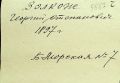 Волконс
Георгий Степанович
1897 г.
Б. Морская № 7